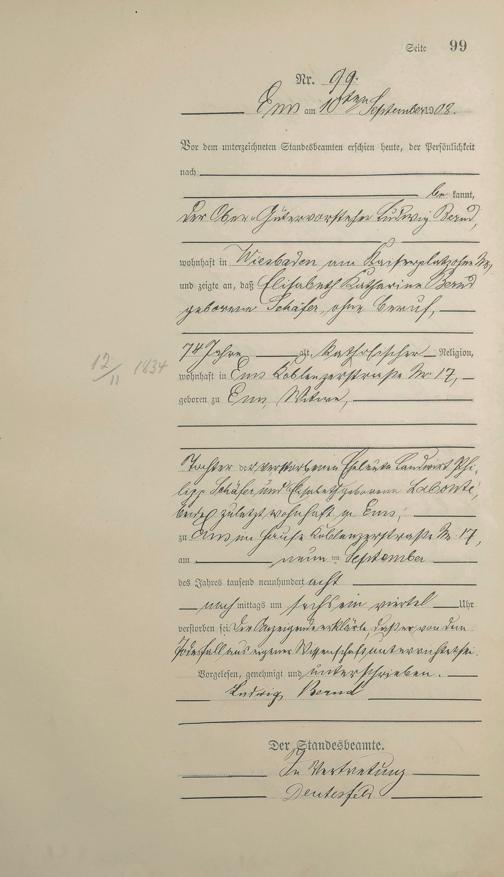 Seite 99
Nr. 99.
Ems am 10ten September 1908.
Vor dem unterzeichneten Standesbeamten erschien heute, der Persönlichkeit
nach
bekannt,
der Ober-Gütervorsteher Ludwig Bernd,
wohnhaft in Wiesbaden am Kaiserplatz ohne No,
und zeigte an, daß Elisabeth Katharine Bernd
geborene Schäfer, ohne Beruf,
74 Jahre alt, katholischer Religion,
12/11 1834
wohnhaft in Ems Koblenzerstraße Nr. 17,
geboren zu Ems, Witwe,
Tochter der verstorbenen Eheleute Landwirt Phi-
lipp Schäfer und Elisabeth geborene Labonté,
beide zuletzt wohnhaft zu Ems,
zu Ems im Hause Koblenzerstraße Nr. 17,
am neun September
des Jahres tausend neunhundert acht
nachmittags um sechs ein viertel Uhr
verstorben sei. Der Anzeigende erklärte, daß er von dem
Todesfall aus eigener Wissenschaft unterrichtet sei.
Vorgelesen, genehmigt und unterschrieben.
Ludwig Bernd
Der Standesbeamte.
In Vertretung